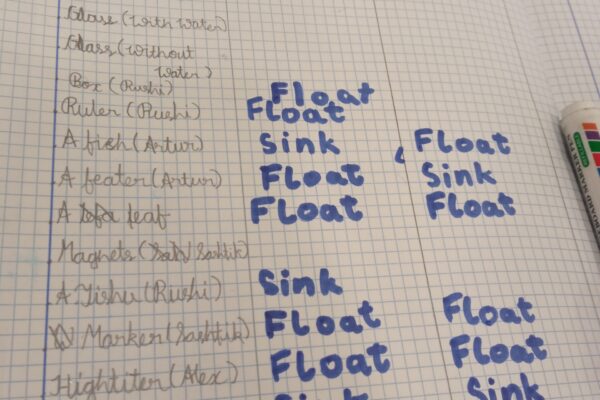 Glass (with water)
Glass (without
water)
Box (Rushi) Float
Ruler (Rushi) Float
A fish (Artur) Sink Float
A feater (Artur) Float Sink
A leaf Float Float
Magnets (Sashtik)
A Tishu (Rushi) Sink
Marker (Sashtik) Float Float
Hightliter (Alex) Float Float
Sink